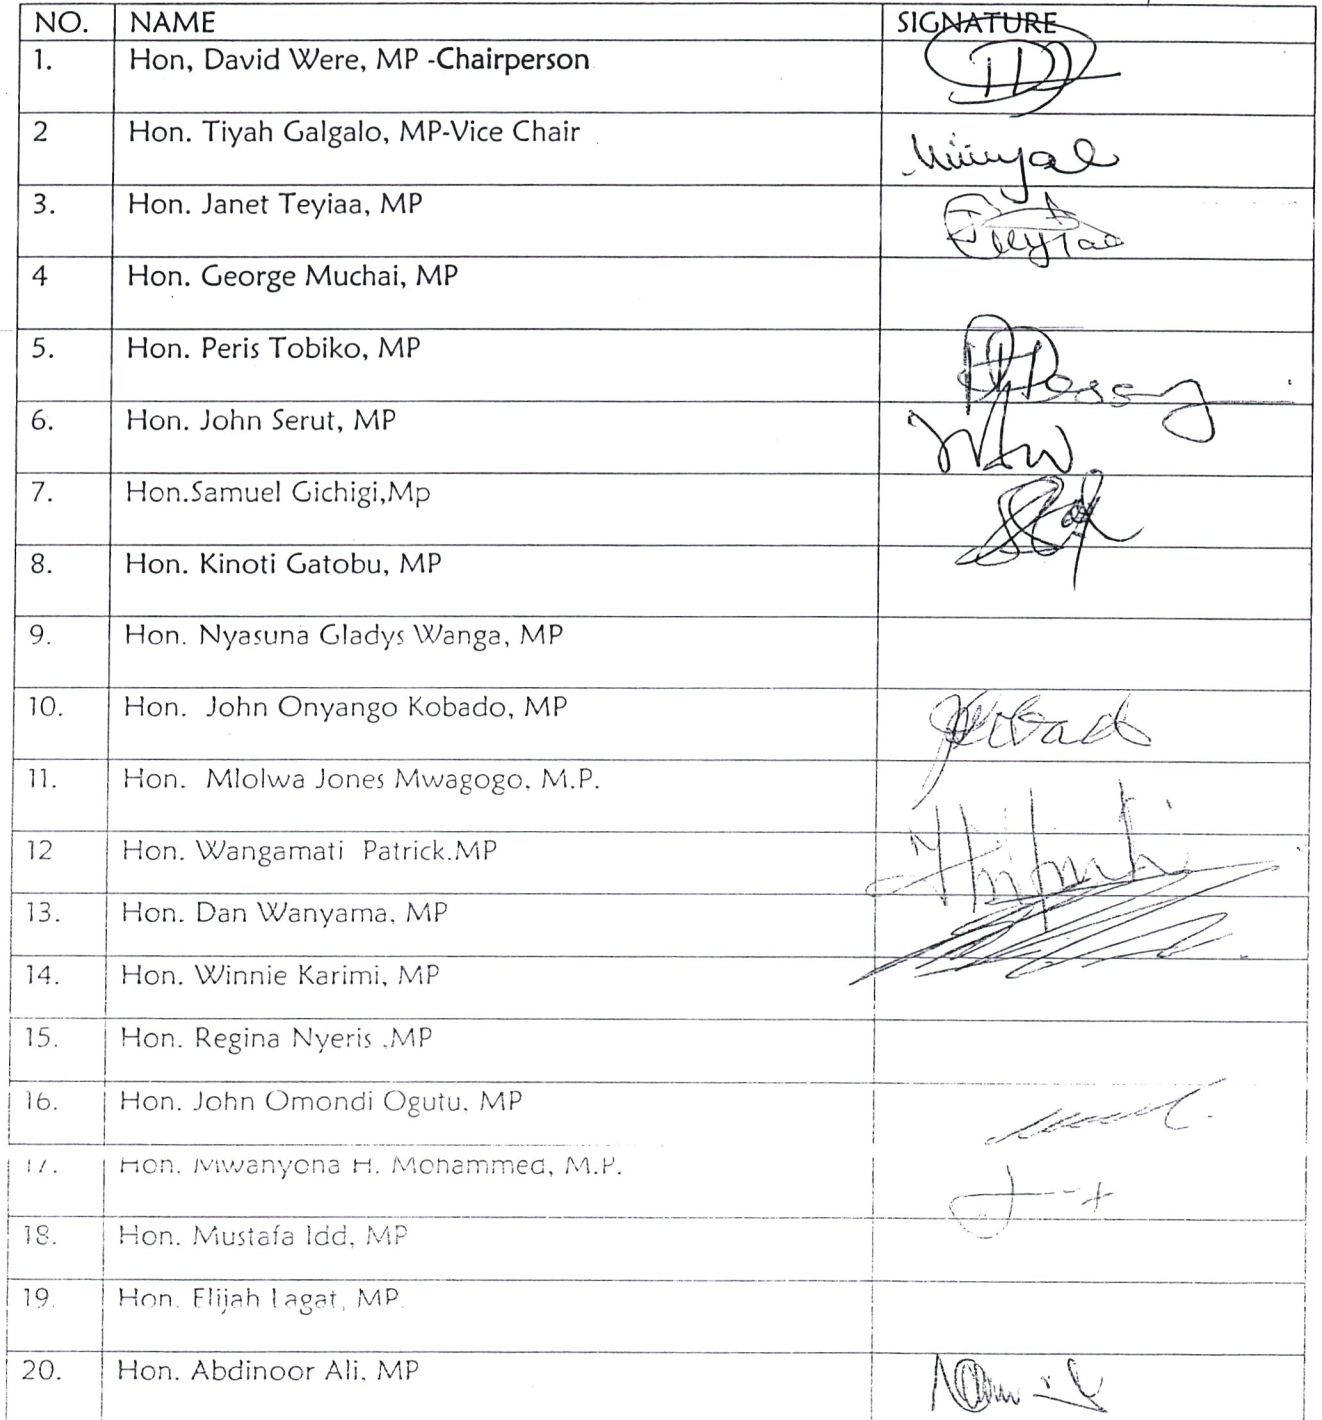 NO. NAME SIGNATURE
1. Hon, David Were, MP -Chairperson
2 Hon. Tiyah Galgalo, MP-Vice Chair
3. Hon. Janet Teyiaa, MP
4 Hon. George Muchai, MP
5. Hon. Peris Tobiko, MP
6. Hon. John Serut, MP
7. Hon.Samuel Gichigi,Mp
8. Hon. Kinoti Gatobu, MP
9. Hon. Nyasuna Gladys Wanga, MP
10. Hon. John Onyango Kobado, MP
11. Hon. Mlolwa Jones Mwagogo, M.P.
12 Hon. Wangamati Patrick.MP
13. Hon. Dan Wanyama, MP
14. Hon. Winnie Karimi, MP
15. Hon. Regina Nyeris .MP
16. Hon. John Omondi Ogutu, MP
17. Hon. Mwanyoha H. Mohammed, M.P.
18. Hon. Mustafa Idd, MP
19. Hon. Elijah Lagat, MP.
20. Hon. Abdinoor Ali, MP